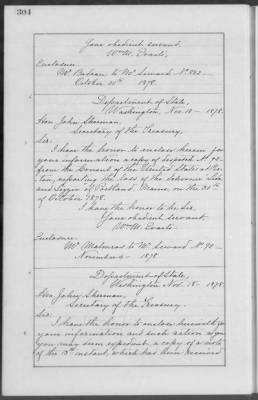 304
Your obedient servant,
Wm. M. Evarts.
Enclosure.
Mr. Badeau to Mr. Seward No.
October 1878.
Department of State,
Washington, Nov. 18 – 1878.
Hon. John Sherman,
Secretary of the Treasury.
Sir:
I have the honor to enclose herein for
your information a copy of despatch No. 90-
from the Consul of the United States at
reporting the loss of the schooner
of Portland, Maine, on the
of October 1878.
I have the honor to be Sir,
Your obedient servant
Wm. M. Evarts.
Enclosure.
Mr. Malmros to Mr. Seward No. 90 –
November 1878.
Department of State,
Washington Nov. 18 – 1878.
Hon. John Sherman,
Secretary of the Treasury.
Sir:
I have the honor to enclose herewith for
your information and such action as you
may deem expedient, a copy of a note
of the instant, which has been received